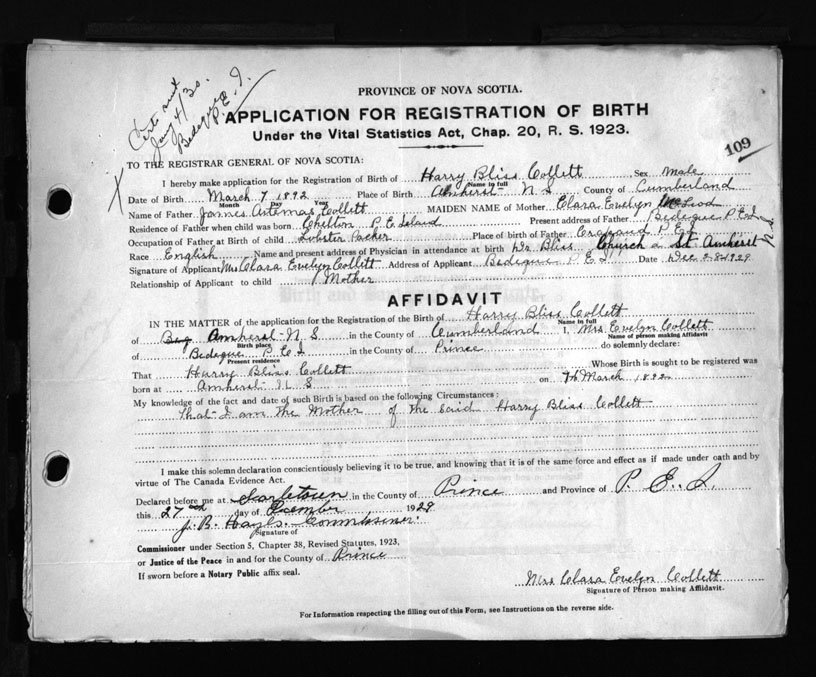 Certs sent
Jany 4/30.
Bedeque
P. E. I.
PROVINCE OF NOVA SCOTIA.
APPLICATION FOR REGISTRATION OF BIRTH
Under the Vital Statistics Act, Chap. 20, R. S. 1923.
109
TO THE REGISTRAR GENERAL OF NOVA SCOTIA:
X
I hereby make application for the Registration of Birth of Harry Bliss Collett Sex Male
Name in full
Date of Birth March 7 1892 Place of Birth Amherst N S County of Cumberland
Month Day Year
Name of Father James Artemas Collett MAIDEN NAME of Mother Clara Evelyn
Residence of Father when child was born Chelton P E Island Present address of Father Bedeque P E I
Occupation of Father at Birth of child Lobster Packer Place of birth of Father P E I
Race English Name and present address of Physician in attendance at birth Dr Bliss Church St Amherst N S
Signature of Applicant Mrs Clara Evelyn Collett Address of Applicant Bedeque P. E. I Date Dec 28 1929
Relationship of Applicant to child Mother
AFFIDAVIT
IN THE MATTER of the application for the Registration of the Birth of Harry Bliss Collett
Name in full
of Amherst N S in the County of Cumberland I, Mrs Evelyn Collett
Birth place Name of person making Affidavit
of Bedeque P E I in the County of Prince do solemnly declare:
Present residence
That Harry Bliss Collett Whose Birth is sought to be registered was
born at Amherst N S on 7th March 1892
My knowledge of the fact and date of such Birth is based on the following Circumstances:
That I am the Mother of the said Harry Bliss Collett
I make this solemn declaration conscientiously believing it to be true, and knowing that it is of the same force and effect as if made under oath and by
virtue of The Canada Evidence Act.
Declared before me at in the County of Prince and Province of P. E. I.
this 27th day of December 1929
J. B. Hayes. Commissioner.
Signature of
Commissioner under Section 5, Chapter 38, Revised Statutes, 1923,
or Justice of the Peace in and for the County of Prince
If sworn before a Notary Public affix seal.
Mrs Clara Evelyn Collett
Signature of Person making Affidavit.
For Information respecting the filling out of this Form, see Instructions on the reverse side.